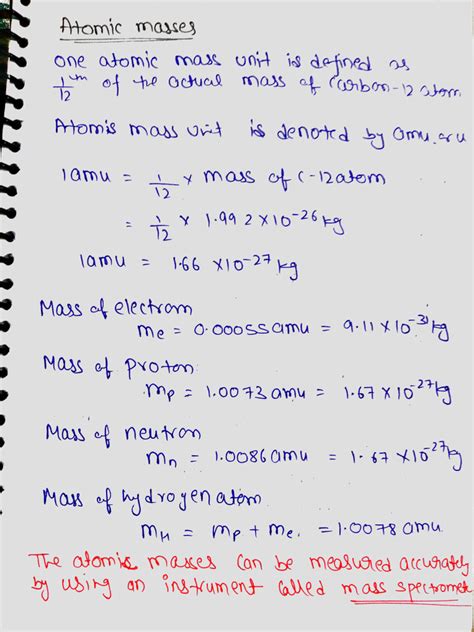 Atomic masses
One atomic mass unit is defined as
1/12 th of the actual mass of Carbon-12 atom
Atomis mass unit is denoted by amu or u
1amu = 1/12 × mass of C-12 atom
= 1/12 × 1.992 × 10⁻²⁶ kg
1amu = 1.66 × 10⁻²⁷ kg
Mass of electron
me = 0.00055 amu = 9.11 × 10⁻³¹ kg
Mass of proton
mp = 1.0073 amu = 1.67 × 10⁻²⁷ kg
Mass of neutron
mn = 1.0086 amu = 1.67 × 10⁻²⁷ kg
Mass of hydrogen atom
MH = mp + me = 1.0078 amu.
The atomis masses can be measured accurately
by using an instrument called mass spectromet